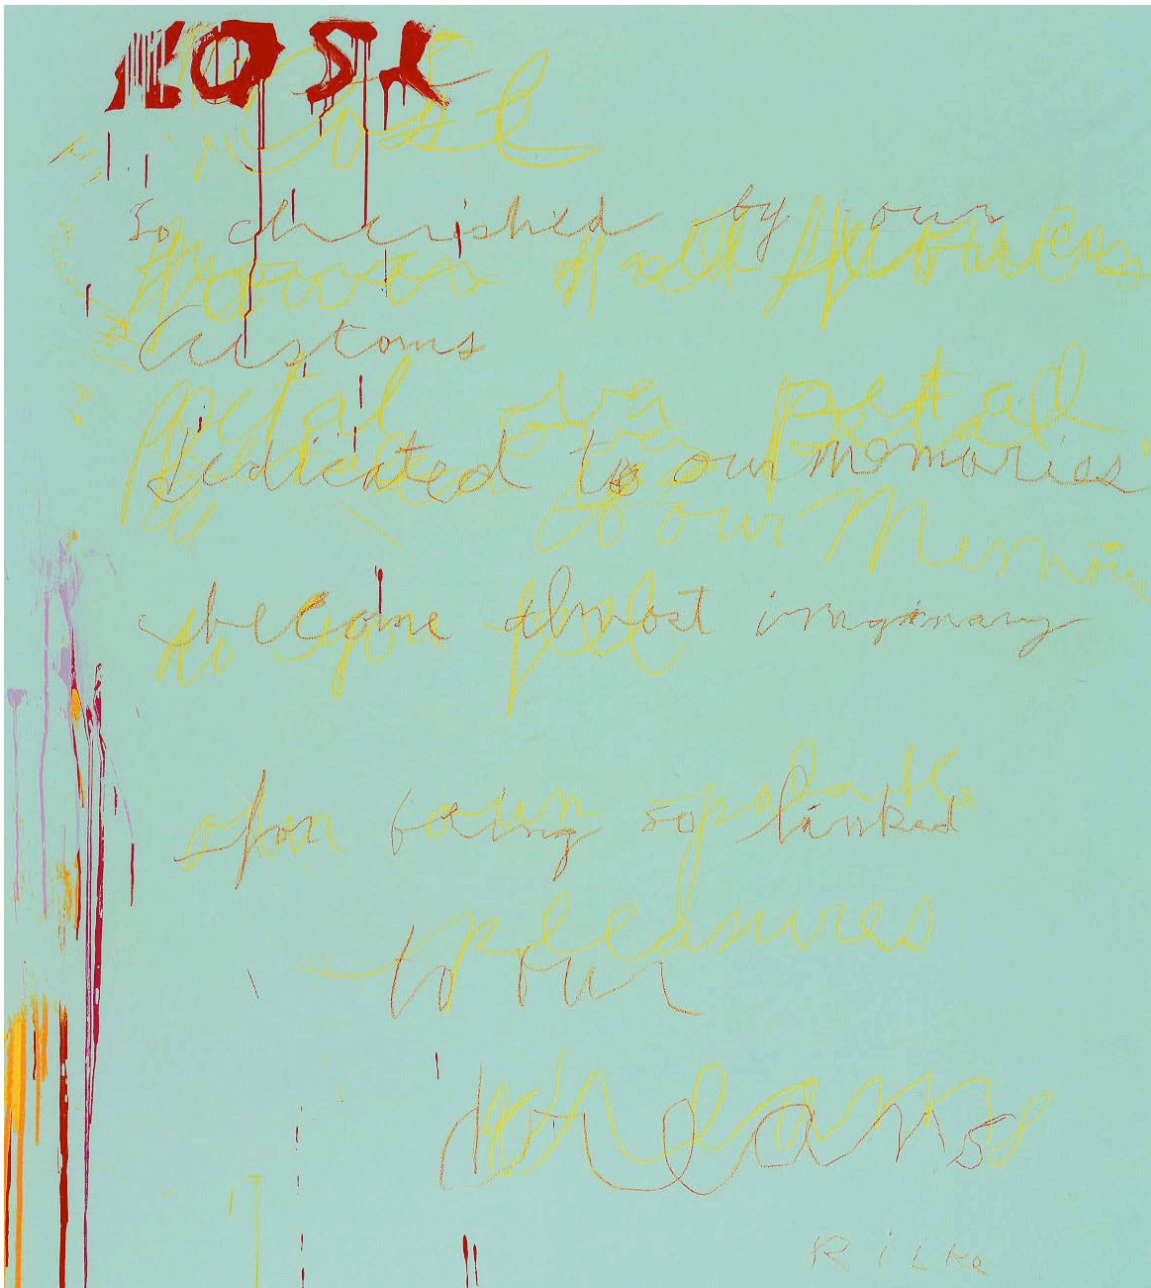 ROSE
Rose
So cherished by our
flower of all flowers
Customs
petal over petal
dedicated to our memories
to our Memories
become almost imaginary
for being so linked
pleasures
to our
dreams
RiLKe